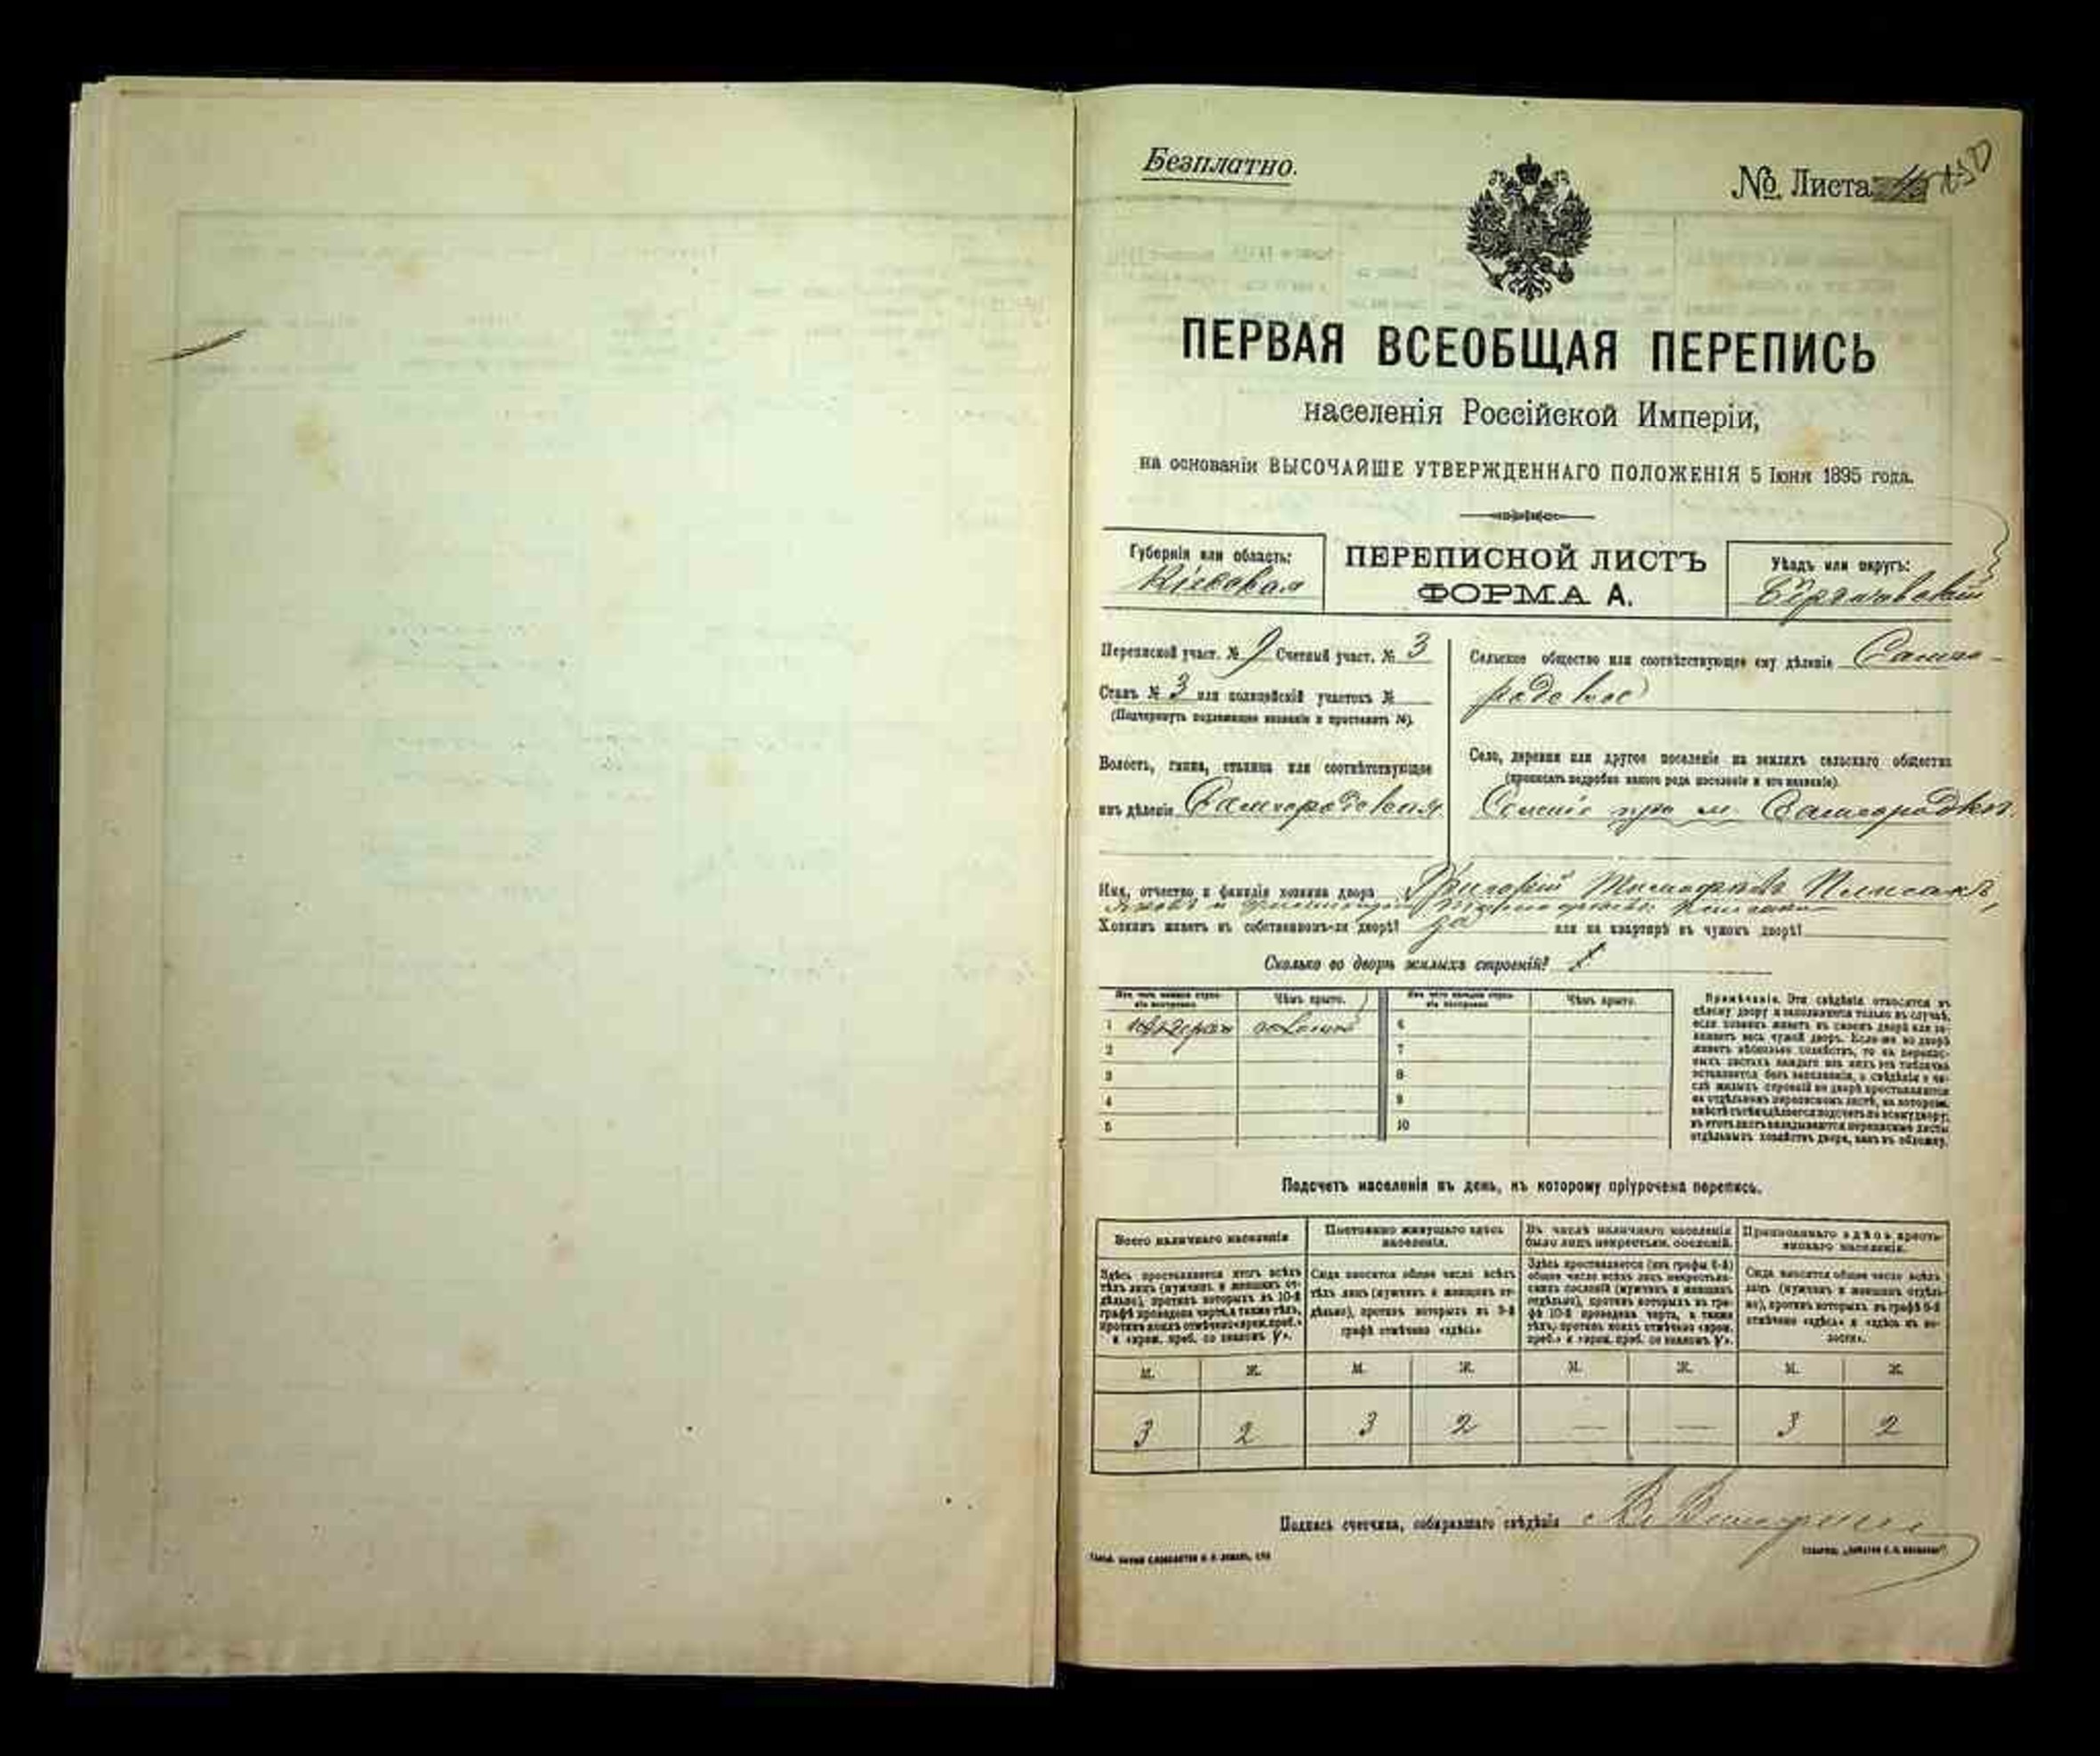 Безплатно.
№ Листа
ПЕРВАЯ ВСЕОБЩАЯ ПЕРЕПИСЬ
населенія Россійской Имперіи,
на основаніи ВЫСОЧАЙШЕ УТВЕРЖДЕННАГО ПОЛОЖЕНІЯ 5 Іюня 1895 года.
Губернія или область:
Кіевская
ПЕРЕПИСНОЙ ЛИСТЪ
ФОРМА А.
Уѣздъ или округъ:
Бердичевскій
Переписной участ. № 9 Счетный участ. № 3
Станъ № 3 или полицейскій участокъ №
(Подчеркнуть подлежащее названіе и проставить №).
Волость, гмина, станица или соотвѣтствующее
имъ дѣленіе Самгородская
Сельское общество или соотвѣтствующее ему дѣленіе Самго-
родское
Село, деревня или другое поселеніе на земляхъ сельскаго общества
(прописать подробно какого рода поселеніе и его названіе).
м. Самгородкѣ
Имя, отчество и фамилія хозяина двора Григорій
Хозяинъ живетъ въ собственномъ-ли дворѣ? да или на квартирѣ въ чужомъ дворѣ?
Сколько во дворѣ жилыхъ строеній? 1
Изъ чего каждое строеніе построено Чѣмъ крыто. Изъ чего каждое строеніе построено Чѣмъ крыто.
1 соломой 6
2 7
3 8
4 9
5 10
Примѣчаніе. Эти свѣдѣнія относятся къ
цѣлому двору и заполняются только въ случаѣ,
если хозяинъ живетъ въ своемъ дворѣ или за-
нимаетъ весь чужой дворъ. Если-же во дворѣ
живетъ нѣсколько хозяйствъ, то на перепис-
ныхъ листахъ каждаго изъ нихъ эта табличка
оставляется безъ заполненія, а свѣдѣнія о чи-
слѣ жилыхъ строеній во дворѣ проставляются
на отдѣльномъ переписномъ листѣ, на которомъ
вмѣстѣ съ тѣмъ дѣлается подсчетъ по всему двору;
въ этотъ листъ вкладываются переписные листы
отдѣльныхъ хозяйствъ двора, какъ въ обложку.
Подсчетъ населенія въ день, къ которому пріурочена перепись.
Всего наличнаго населенія
Здѣсь проставляется итогъ всѣхъ
тѣхъ лицъ (мужчинъ и женщинъ от-
дѣльно), противъ которыхъ въ 10-й
графѣ проведена черта, а также тѣхъ,
противъ коихъ отмѣчено «врем. преб.»
Постоянно живущаго здѣсь
населенія.
Сюда вносится общее число всѣхъ
тѣхъ лицъ (мужчинъ и женщинъ от-
дѣльно), противъ которыхъ въ 9-й
графѣ отмѣчено «здѣсь»
Въ числѣ наличнаго населенія
было лицъ некрестьян. сословій.
Здѣсь проставляется (изъ графы 6-й)
общее число всѣхъ лицъ некрестьян-
скихъ сословій (мужчинъ и женщинъ
отдѣльно), противъ которыхъ въ гра-
фѣ 10-й проведена черта, а также
тѣхъ, противъ коихъ отмѣчено «врем.
Приписаннаго здѣсь кресть-
янскаго населенія.
Сюда вносится общее число всѣхъ
лицъ (мужчинъ и женщинъ отдѣль-
но), противъ которыхъ въ графѣ 8-й
отмѣчено «здѣсь» и «здѣсь въ во-
лости».
М. Ж. М. Ж. М. Ж. М. Ж.
3 2 3 2 — — 3 2
Подпись счетчика, собиравшаго свѣдѣнія